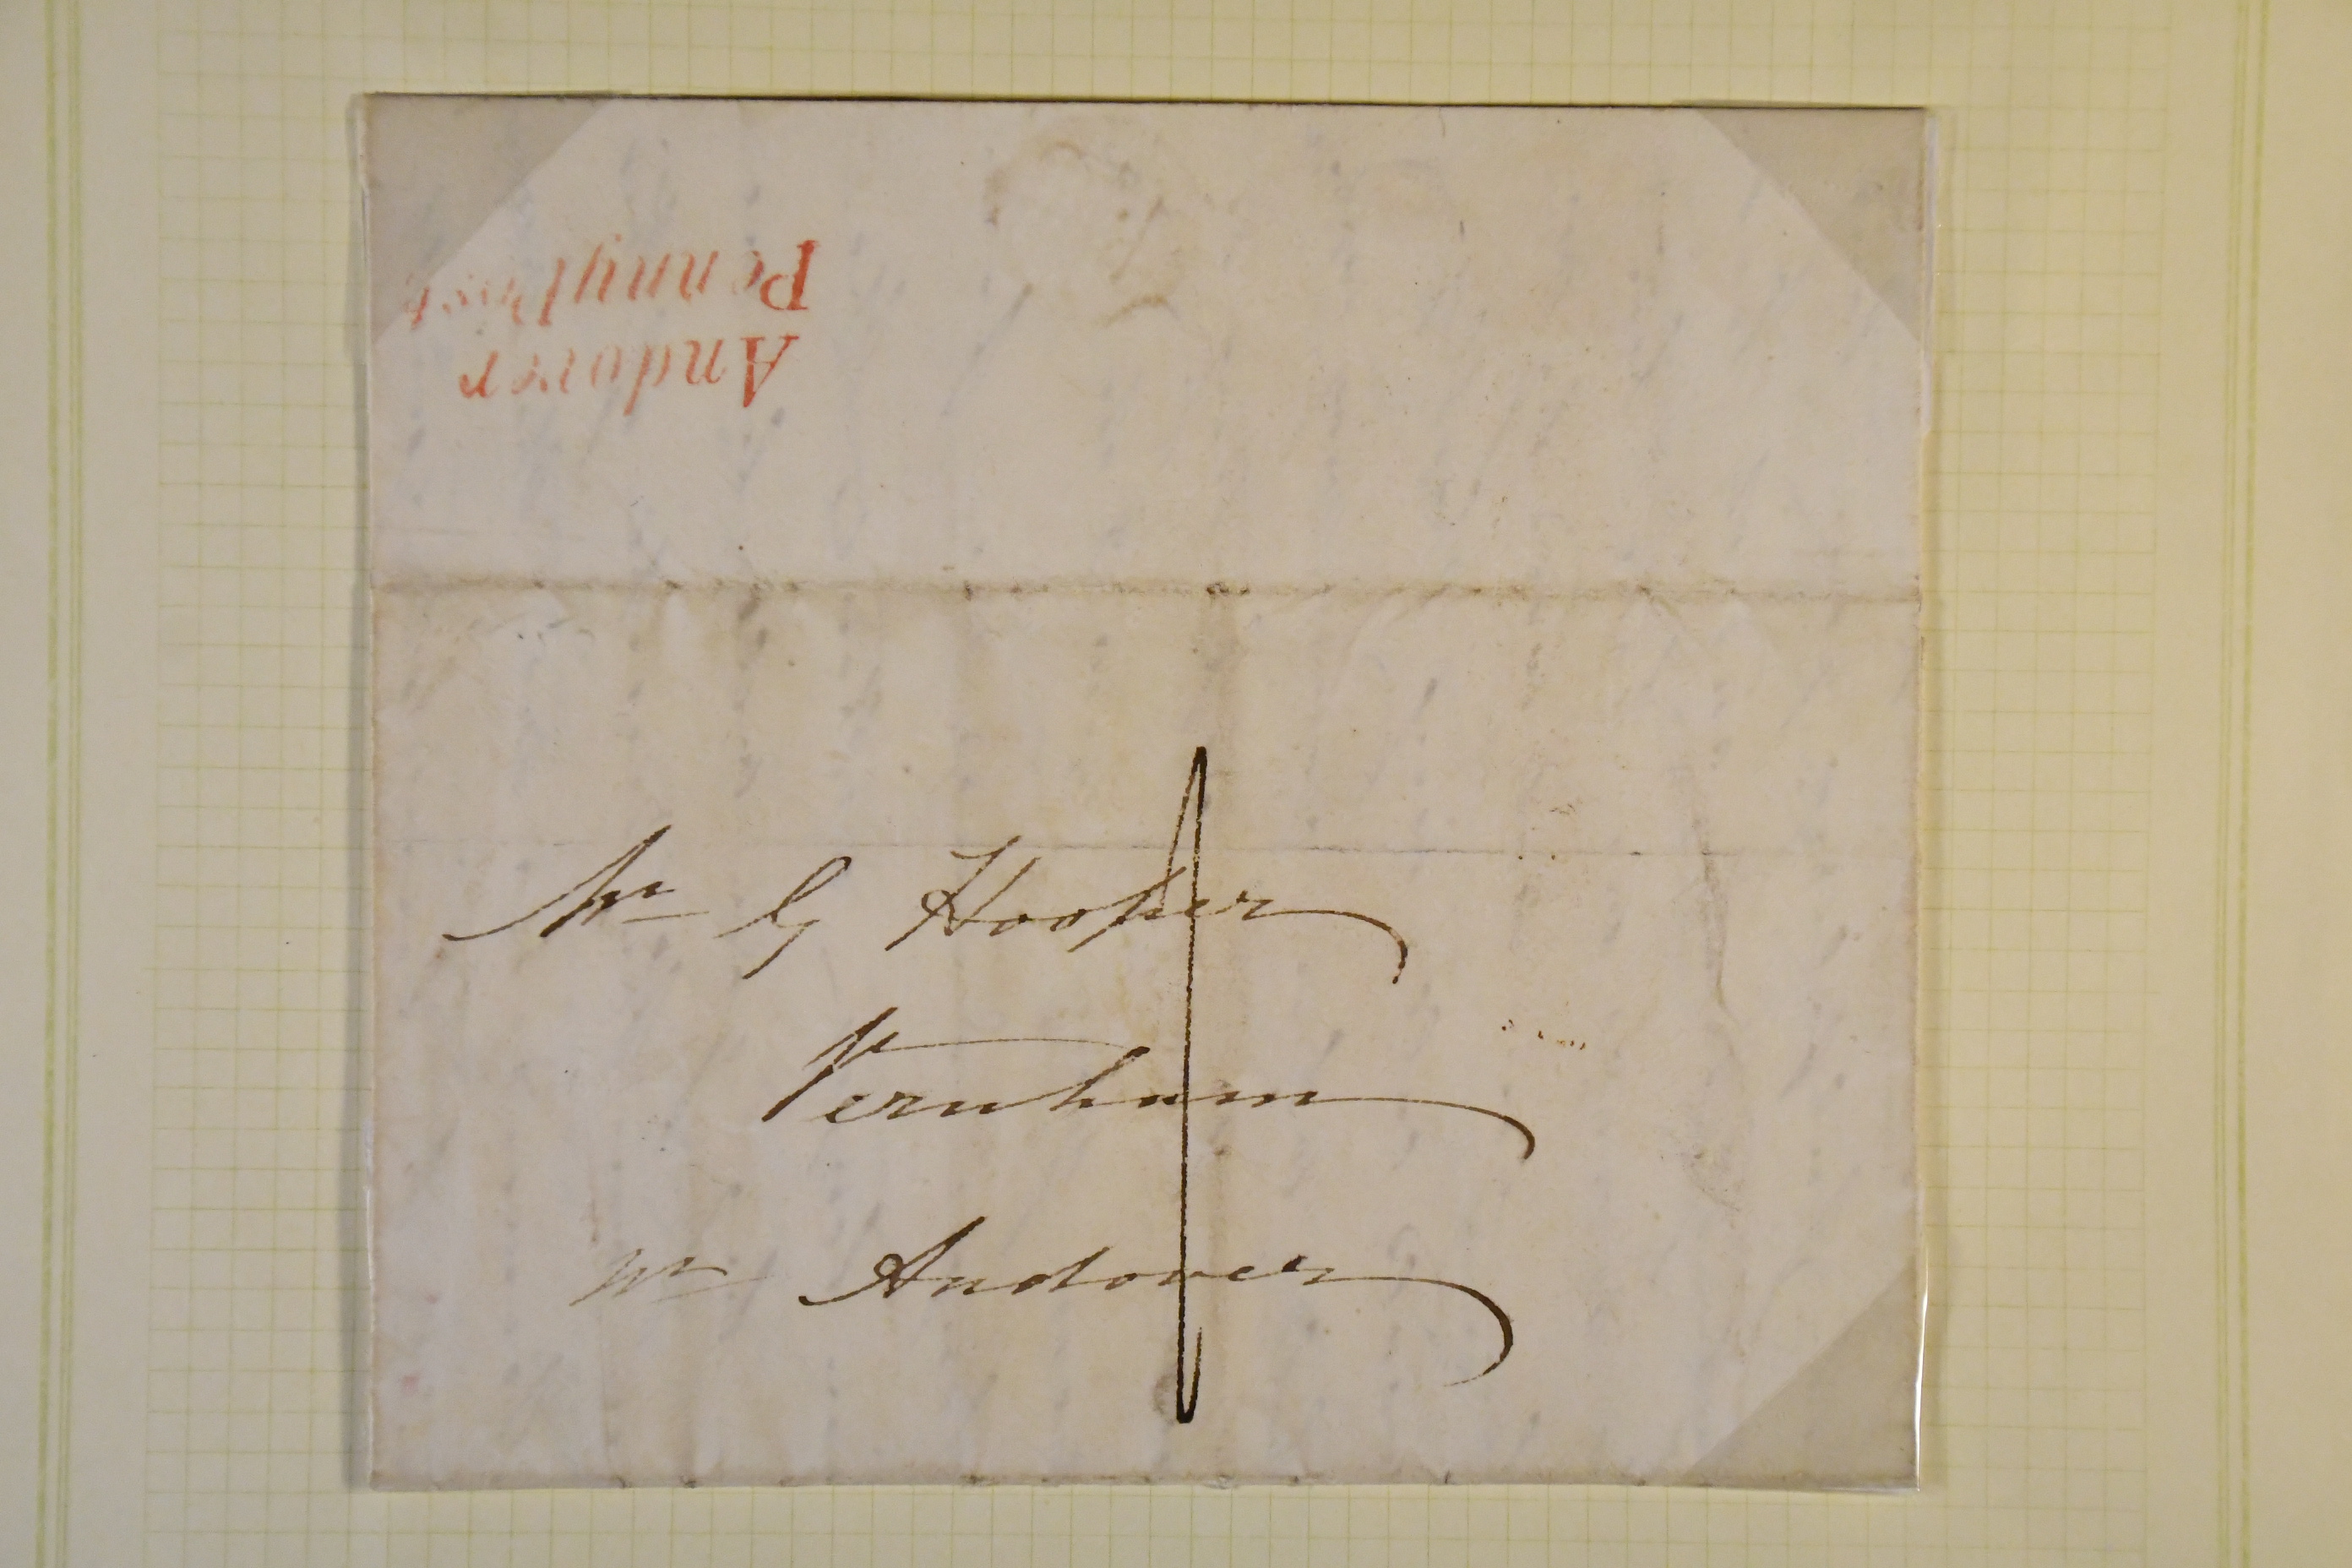 Andover
Penny Post
Mr G Hooper
Vernham
Nr Andover
1